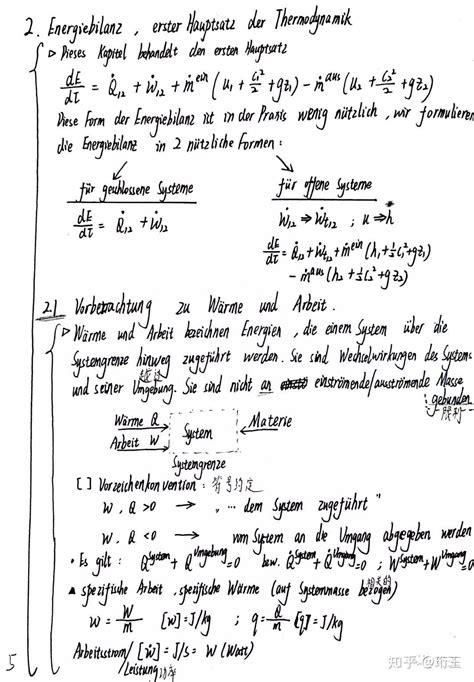 2. Energiebilanz, erster Hauptsatz der Thermodynamik
▷ Dieses Kapitel behandelt den ersten Hauptsatz
dE/dτ = Q̇₁₂ + Ẇ₁₂ + ṁᵉⁱⁿ (u₁ + c₁²/2 + gz₁) - ṁᵃᵘˢ (u₂ + c₂²/2 + gz₂)
Diese Form der Energiebilanz ist in der Praxis wenig nützlich, wir formulieren
die Energiebilanz in 2 nützliche Formen:
für geschlossene Systeme für offene Systeme
dE/dτ = Q̇₁₂ + Ẇ₁₂ Ẇ₁₂ ⇒ Ẇt₁₂ ; u ⇒ h
dE/dτ = Q̇₁₂ + Ẇt₁₂ + ṁᵉⁱⁿ (h₁ + ½c₁² + gz₁)
- ṁᵃᵘˢ (h₂ + ½c₂² + gz₂)
2.1 Vorbetrachtung zu Wärme und Arbeit.
▷ Wärme und Arbeit bezeichnen Energien, die einem System über die
Systemgrenze hinweg zugeführt werden. Sie sind Wechselwirkungen des Systems
越过
und seiner Umgebung. Sie sind nicht an einströmende/ausströmende Masse
gebunden
限制
Wärme Q
Arbeit W System Materie
Systemgrenze
[] Vorzeichenkonvention: 符号约定
W, Q >0 → "... dem System zugeführt"
W, Q <0 → vom System an die Umgang abgegeben werden
• Es gilt: Qˢʸˢᵗᵉᵐ + Qᵁᵐᵍᵉᵇᵘⁿᵍ = 0 bzw. Q̇ˢʸˢᵗᵉᵐ + Q̇ᵁᵐᵍᵃⁿᵍ = 0 ; Wˢʸˢᵗᵉᵐ + Wᵁᵐᵍᵃⁿᵍ = 0
▲ spezifische Arbeit, spezifische Wärme (auf Systemmasse bezogen)
相关的
w = W/m [w] = J/kg ; q = Q/m [q] = J/kg
Arbeitsstrom/ [ẇ] = J/s = W (Watt)
Leistung 功率
5
知乎 @珩玉